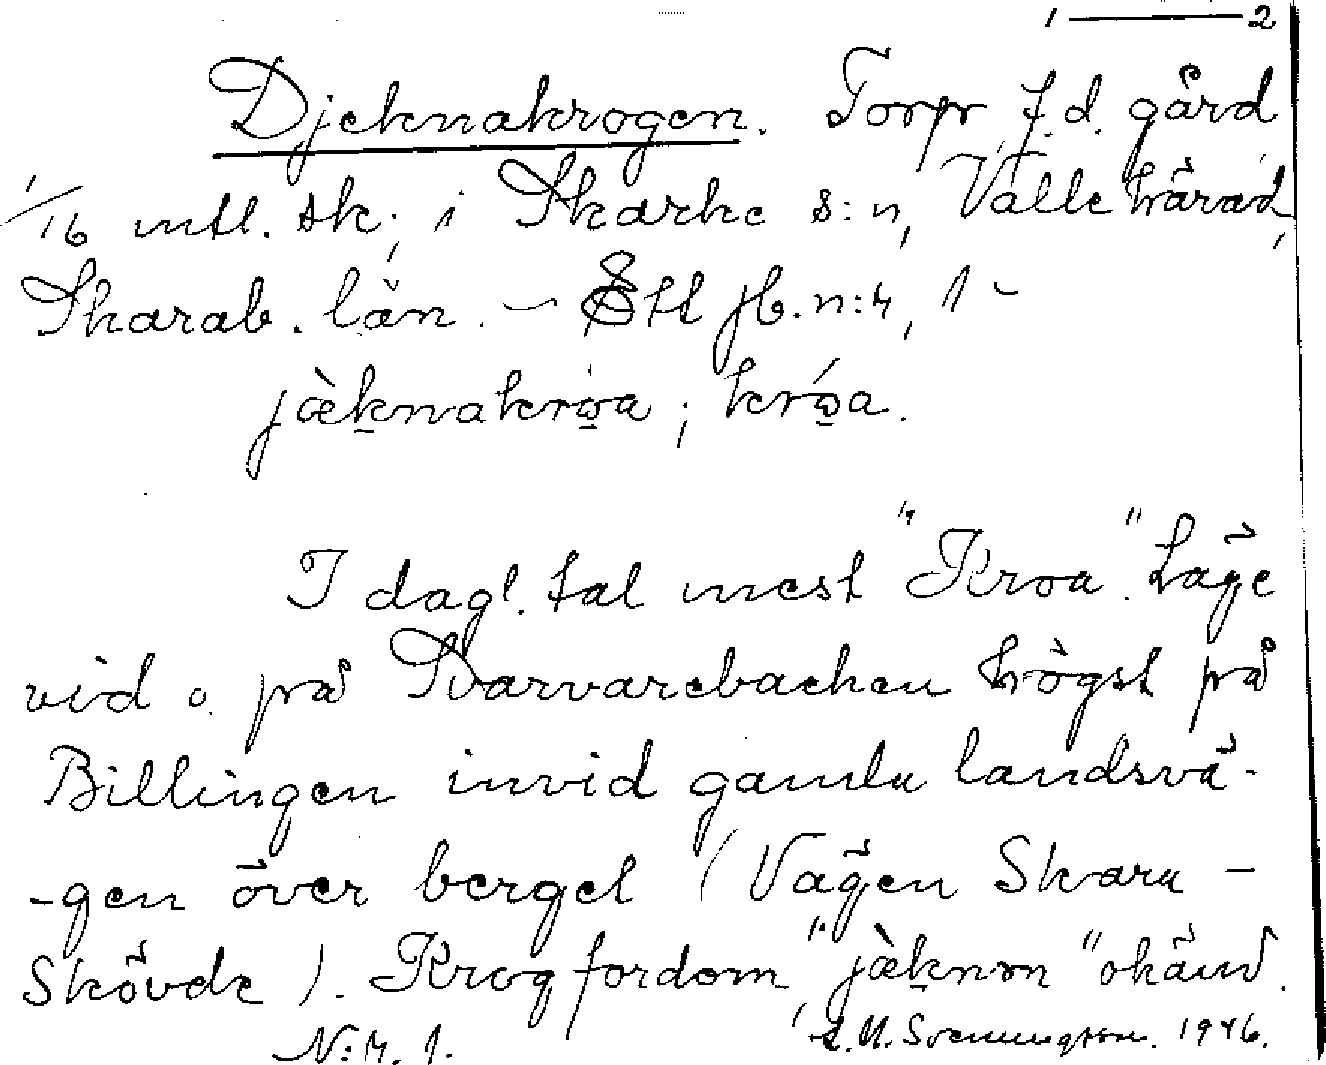 1 — 2
Djeknakrogen. Torp, f.d. gård
1/16 mtl. sk; i Skarke s:n, Valle härad,
Skarab. län. – Ett jb. n:r, 1 –
jæ̀ḵnakrꞷ̲a ; krꞷ̲́a.
I dagl. tal mest "Kroa". Läge
vid o. på Svarvarebacken högst på
Billingen invid gamla landsvä-
-gen över berget (Vägen Skara –
Skövde). Krog fordom, "jæ̀ḵnon" okänd.
N:r. 1.
Svenungsson. 1946.